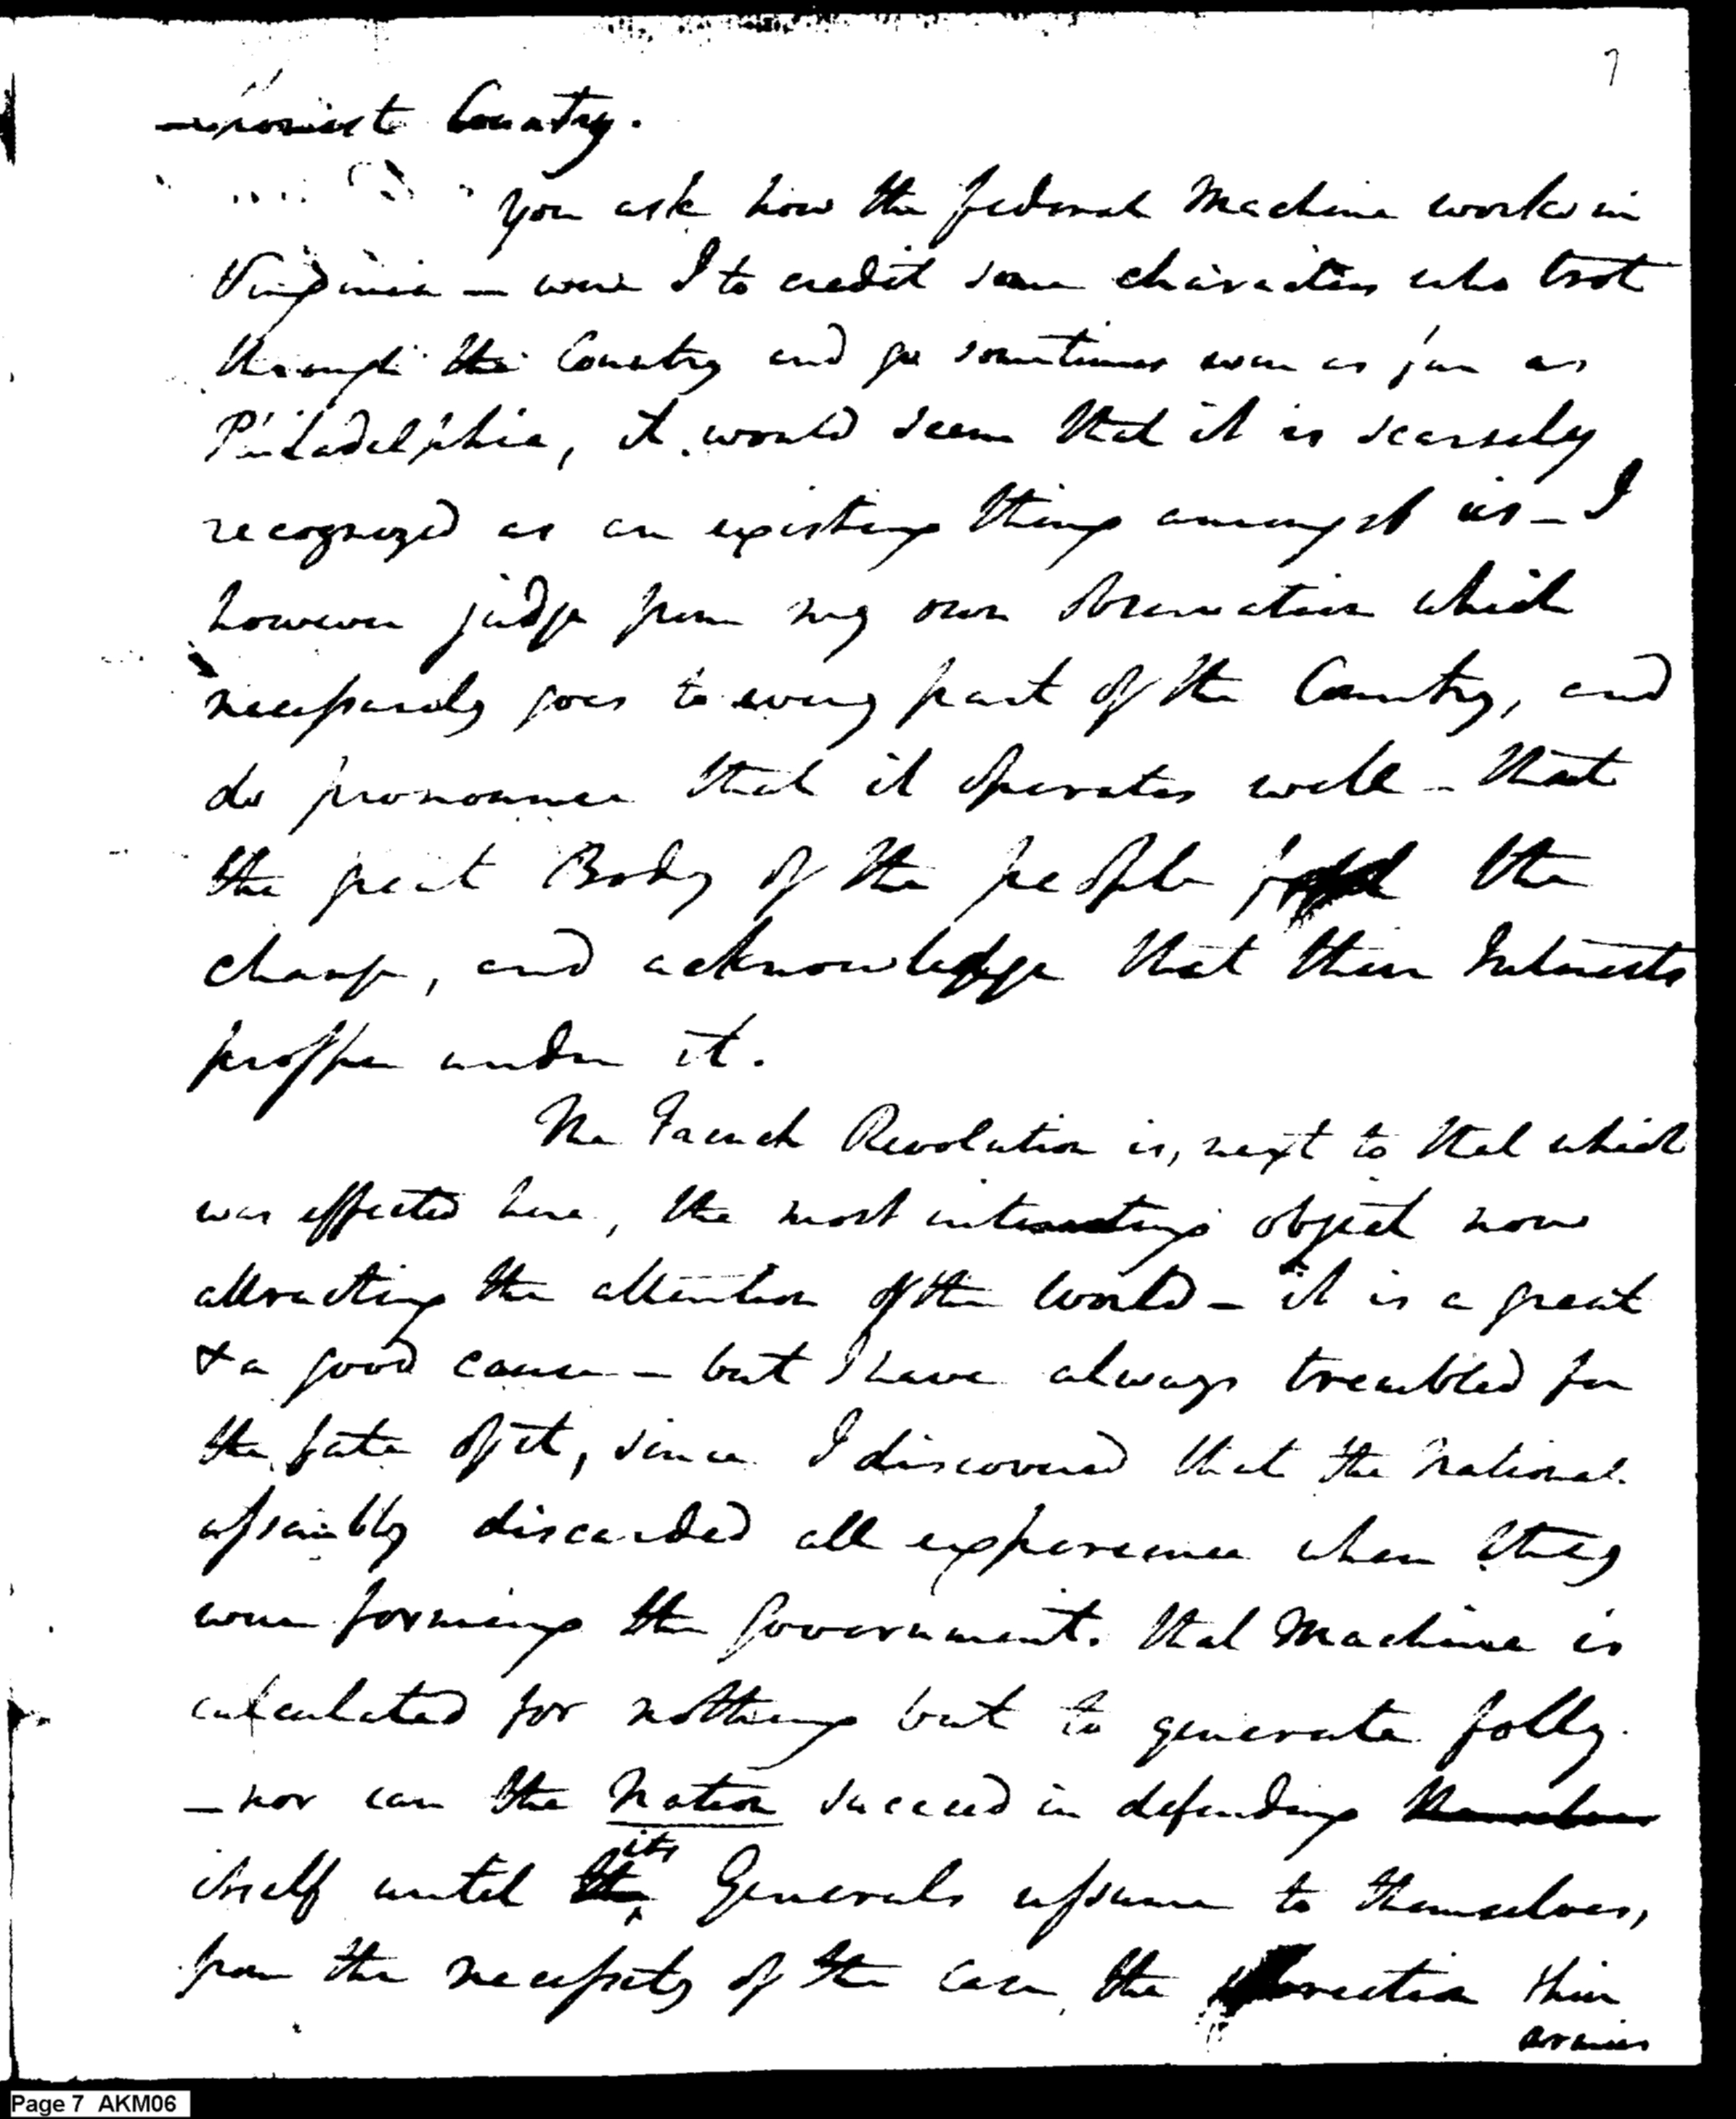 7
Country.
You ask how the federal Machine works in
Virginia — were I to credit some characters who trot
through the Country and go sometimes even as far as
Philadelphia, it would seem that it is scarsely
recognized as an existing thing amongst us — I
however judge from my own observation which
necessarily goes to every part of the Country, and
do pronounce that it operates well — that
the great Body of the people the
change, and acknowledge that their Interests
prosper under it.
The French Revolution is, next to that which
was effected here, the most interesting object now
attracting the attention of the World — it is a great
& a good cause — but I have always trembled for
the fate of it, since I discovered that the National
assembly discarded all experience when they
were forming the Government. that Machine is
calculated for nothing but to generate folly.
— nor can the Nation succeed in defending
its
itself until the Generals assume to themselves,
from the necessity of the case, the direction their
armies
Page 7 AKM06